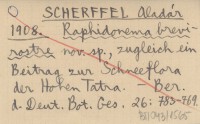 SCHERFFEL Aladár
1908. Raphidonema brevi-
rostre nov. sp., zugleich ein
Beitrag zur Schneeflora
der Hohen Tatra. - Ber.
d. Deut. Bot. Ges. 26: 783-769.